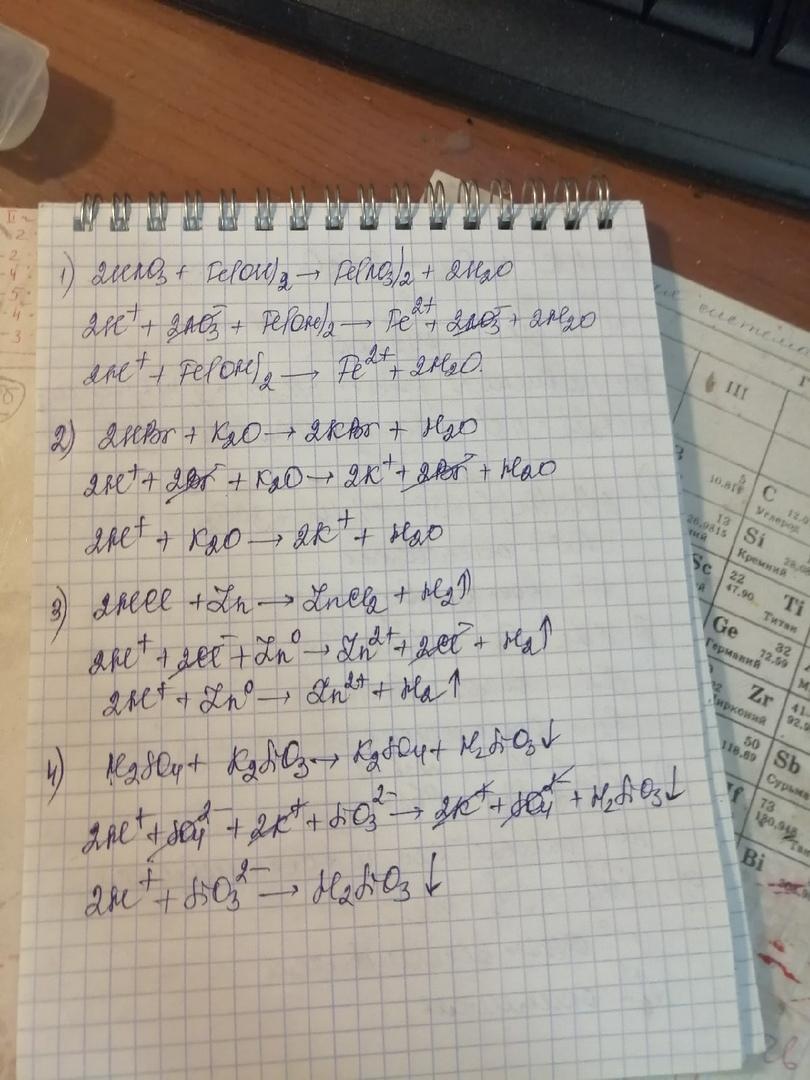 1) 2HNO3 + Fe(OH)2 → Fe(NO3)2 + 2H2O
2H⁺ + 2NO3⁻ + Fe(OH)2 → Fe²⁺ + 2NO3⁻ + 2H2O
2H⁺ + Fe(OH)2 → Fe²⁺ + 2H2O.
2) 2HBr + K2O → 2KBr + H2O
2H⁺ + 2Br⁻ + K2O → 2K⁺ + 2Br⁻ + H2O
2H⁺ + K2O → 2K⁺ + H2O
3) 2HCl + Zn → ZnCl2 + H2↑
2H⁺ + 2Cl⁻ + Zn⁰ → Zn²⁺ + 2Cl⁻ + H2↑
2H⁺ + Zn⁰ → Zn²⁺ + H2↑
4) H2SO4 + K2SiO3 → K2SO4 + H2SiO3↓
2H⁺ + SO4²⁻ + 2K⁺ + SiO3²⁻ → 2K⁺ + SO4²⁻ + H2SiO3↓
2H⁺ + SiO3²⁻ → H2SiO3↓
III
5
10.811
C
12.0
Углерод
13
26.9815
Si
28.08
Кремний
Sc
22
47.90
Ti
Титан
Ge
32
72.59
Германий
Zr
41
92.9
Цирконий
50
118.69
Sb
Сурьма
73
180.948
Bi